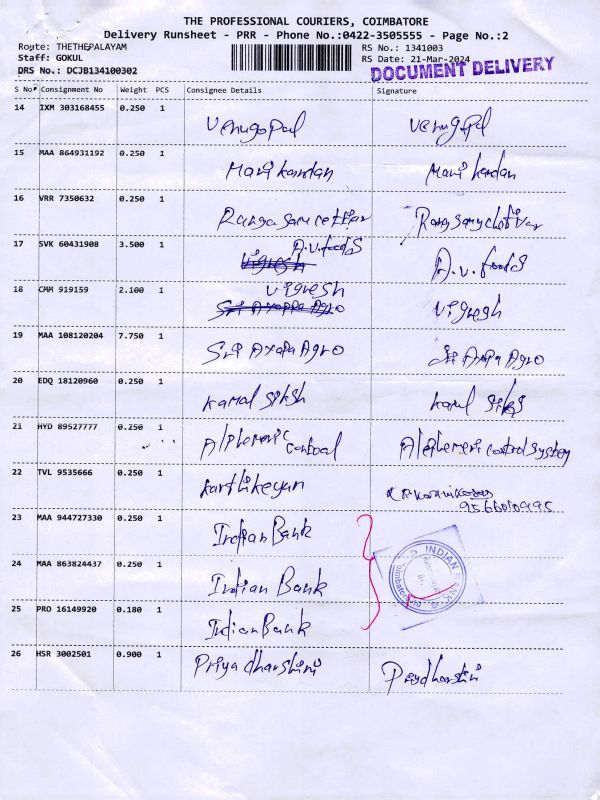 THE PROFESSIONAL COURIERS, COIMBATORE
Delivery Runsheet - PRR - Phone No.:0422-3505555 - Page No.:2
Route: THETHEPALAYAM RS No.: 1341003
Staff: GOKUL RS Date: 21-Mar-2024
DRS No.: DCJB134100302 DOCUMENT DELIVERY
S No Consignment No Weight PCS Consignee Details Signature
14 IXM 303168455 0.250 1 Venugopal Venugopal
15 MAA 864931192 0.250 1 Manikandan Manikandan
16 VRR 7350632 0.250 1 Rangasamichettiar Rangasamychettiar
17 SVK 60431908 3.500 1 Vigresh A.V.foods A.V.foods
18 CMM 919159 2.100 1 Vigresh Sri Ayappa Agro Vigresh
19 MAA 108120204 7.750 1 Sri Ayapa Agro Sri Ayapa Agro
20 EDQ 18120960 0.250 1 Kamal siksh
21 HYD 89527777 0.250 1 Alphemeric Control Alphemeric control system
22 TVL 9535666 0.250 1 Karthikeyan
23 MAA 944727330 0.250 1 Indian Bank
24 MAA 863824437 0.250 1 Indian Bank INDIAN BANK
25 PRO 16149920 0.180 1 Indian Bank
26 HSR 3002501 0.900 1 Priya dharshini Priydharshini